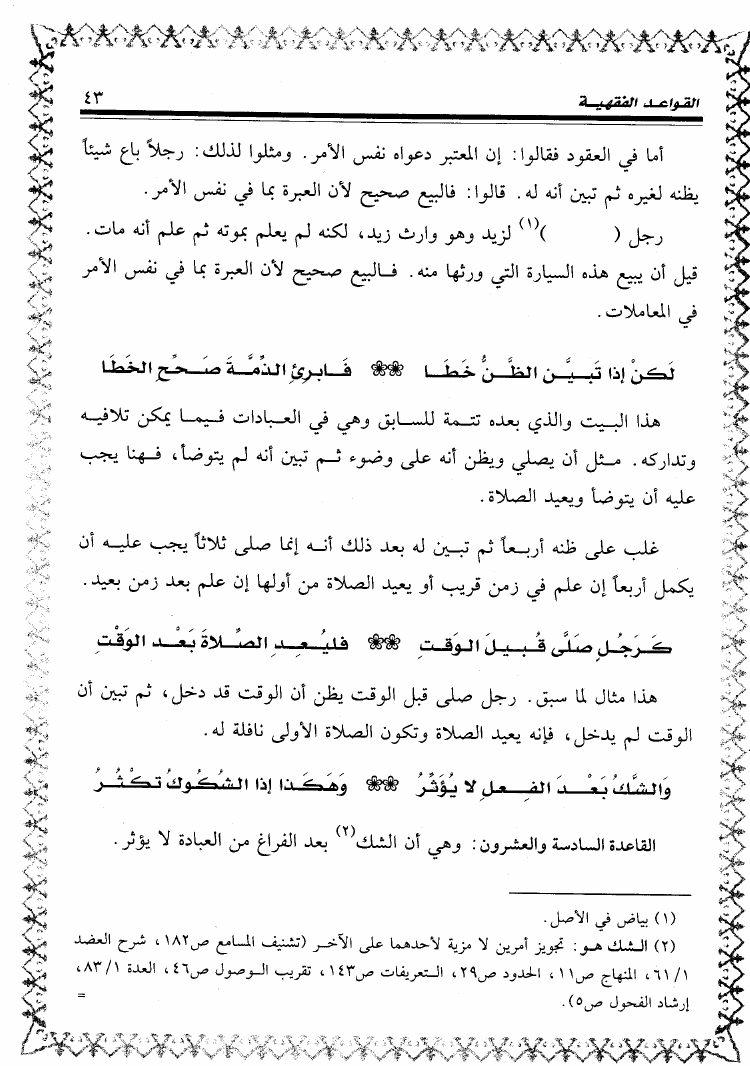 القواعد الفقهية ٤٣
أما في العقود فقالوا: إن المعتبر دعواه نفس الأمر. ومثلوا لذلك: رجلاً باع شيئاً
يظنه لغيره ثم تبين أنه له. قالوا: فالبيع صحيح لأن العبرة بما في نفس الأمر.
رجل ( )(١) لزيد وهو وارث زيد، لكنه لم يعلم بموته ثم علم أنه مات.
قبل أن يبيع هذه السيارة التي ورثها منه. فالبيع صحيح لأن العبرة بما في نفس الأمر
في المعاملات.
لَكنْ إذا تَبيَّن الظَّنُّ خَطَا ❀❀ فَابرئِ الذِّمَّةَ صَحِّحِ الخَطَا
هذا البيت والذي بعده تتمة للسابق وهي في العبادات فيما يمكن تلافيه
وتداركه. مثل أن يصلي ويظن أنه على وضوء ثم تبين أنه لم يتوضأ، فهنا يجب
عليه أن يتوضأ ويعيد الصلاة.
غلب على ظنه أربعاً ثم تبين له بعد ذلك أنه إنما صلى ثلاثاً يجب عليه أن
يكمل أربعاً إن علم في زمن قريب أو يعيد الصلاة من أولها إن علم بعد زمن بعيد.
كَرَجُلٍ صَلَّى قُبيلَ الوَقتِ ❀❀ فليُعِدِ الصَّلاةَ بَعْد الوَقْتِ
هذا مثال لما سبق. رجل صلى قبل الوقت يظن أن الوقت قد دخل، ثم تبين أن
الوقت لم يدخل، فإنه يعيد الصلاة وتكون الصلاة الأولى نافلة له.
وَالشَّكُ بَعْدَ الفِعلِ لا يُؤَثِّرُ ❀❀ وَهَكَذا إذا الشكُوكُ تكْثُرُ
القاعدة السادسة والعشرون: وهي أن الشك(٢) بعد الفراغ من العبادة لا يؤثر.
(١) بياض في الأصل.
(٢) الشك هو: تجويز أمرين لا مزية لأحدهما على الآخر (تشنيف المسامع ص١٨٢، شرح العضد
٦١/١، المنهاج ص١١، الحدود ص٢٩، التعريفات ص١٤٣، تقريب الوصول ص٤٦، العدة ٨٣/١،
إرشاد الفحول ص٥). =